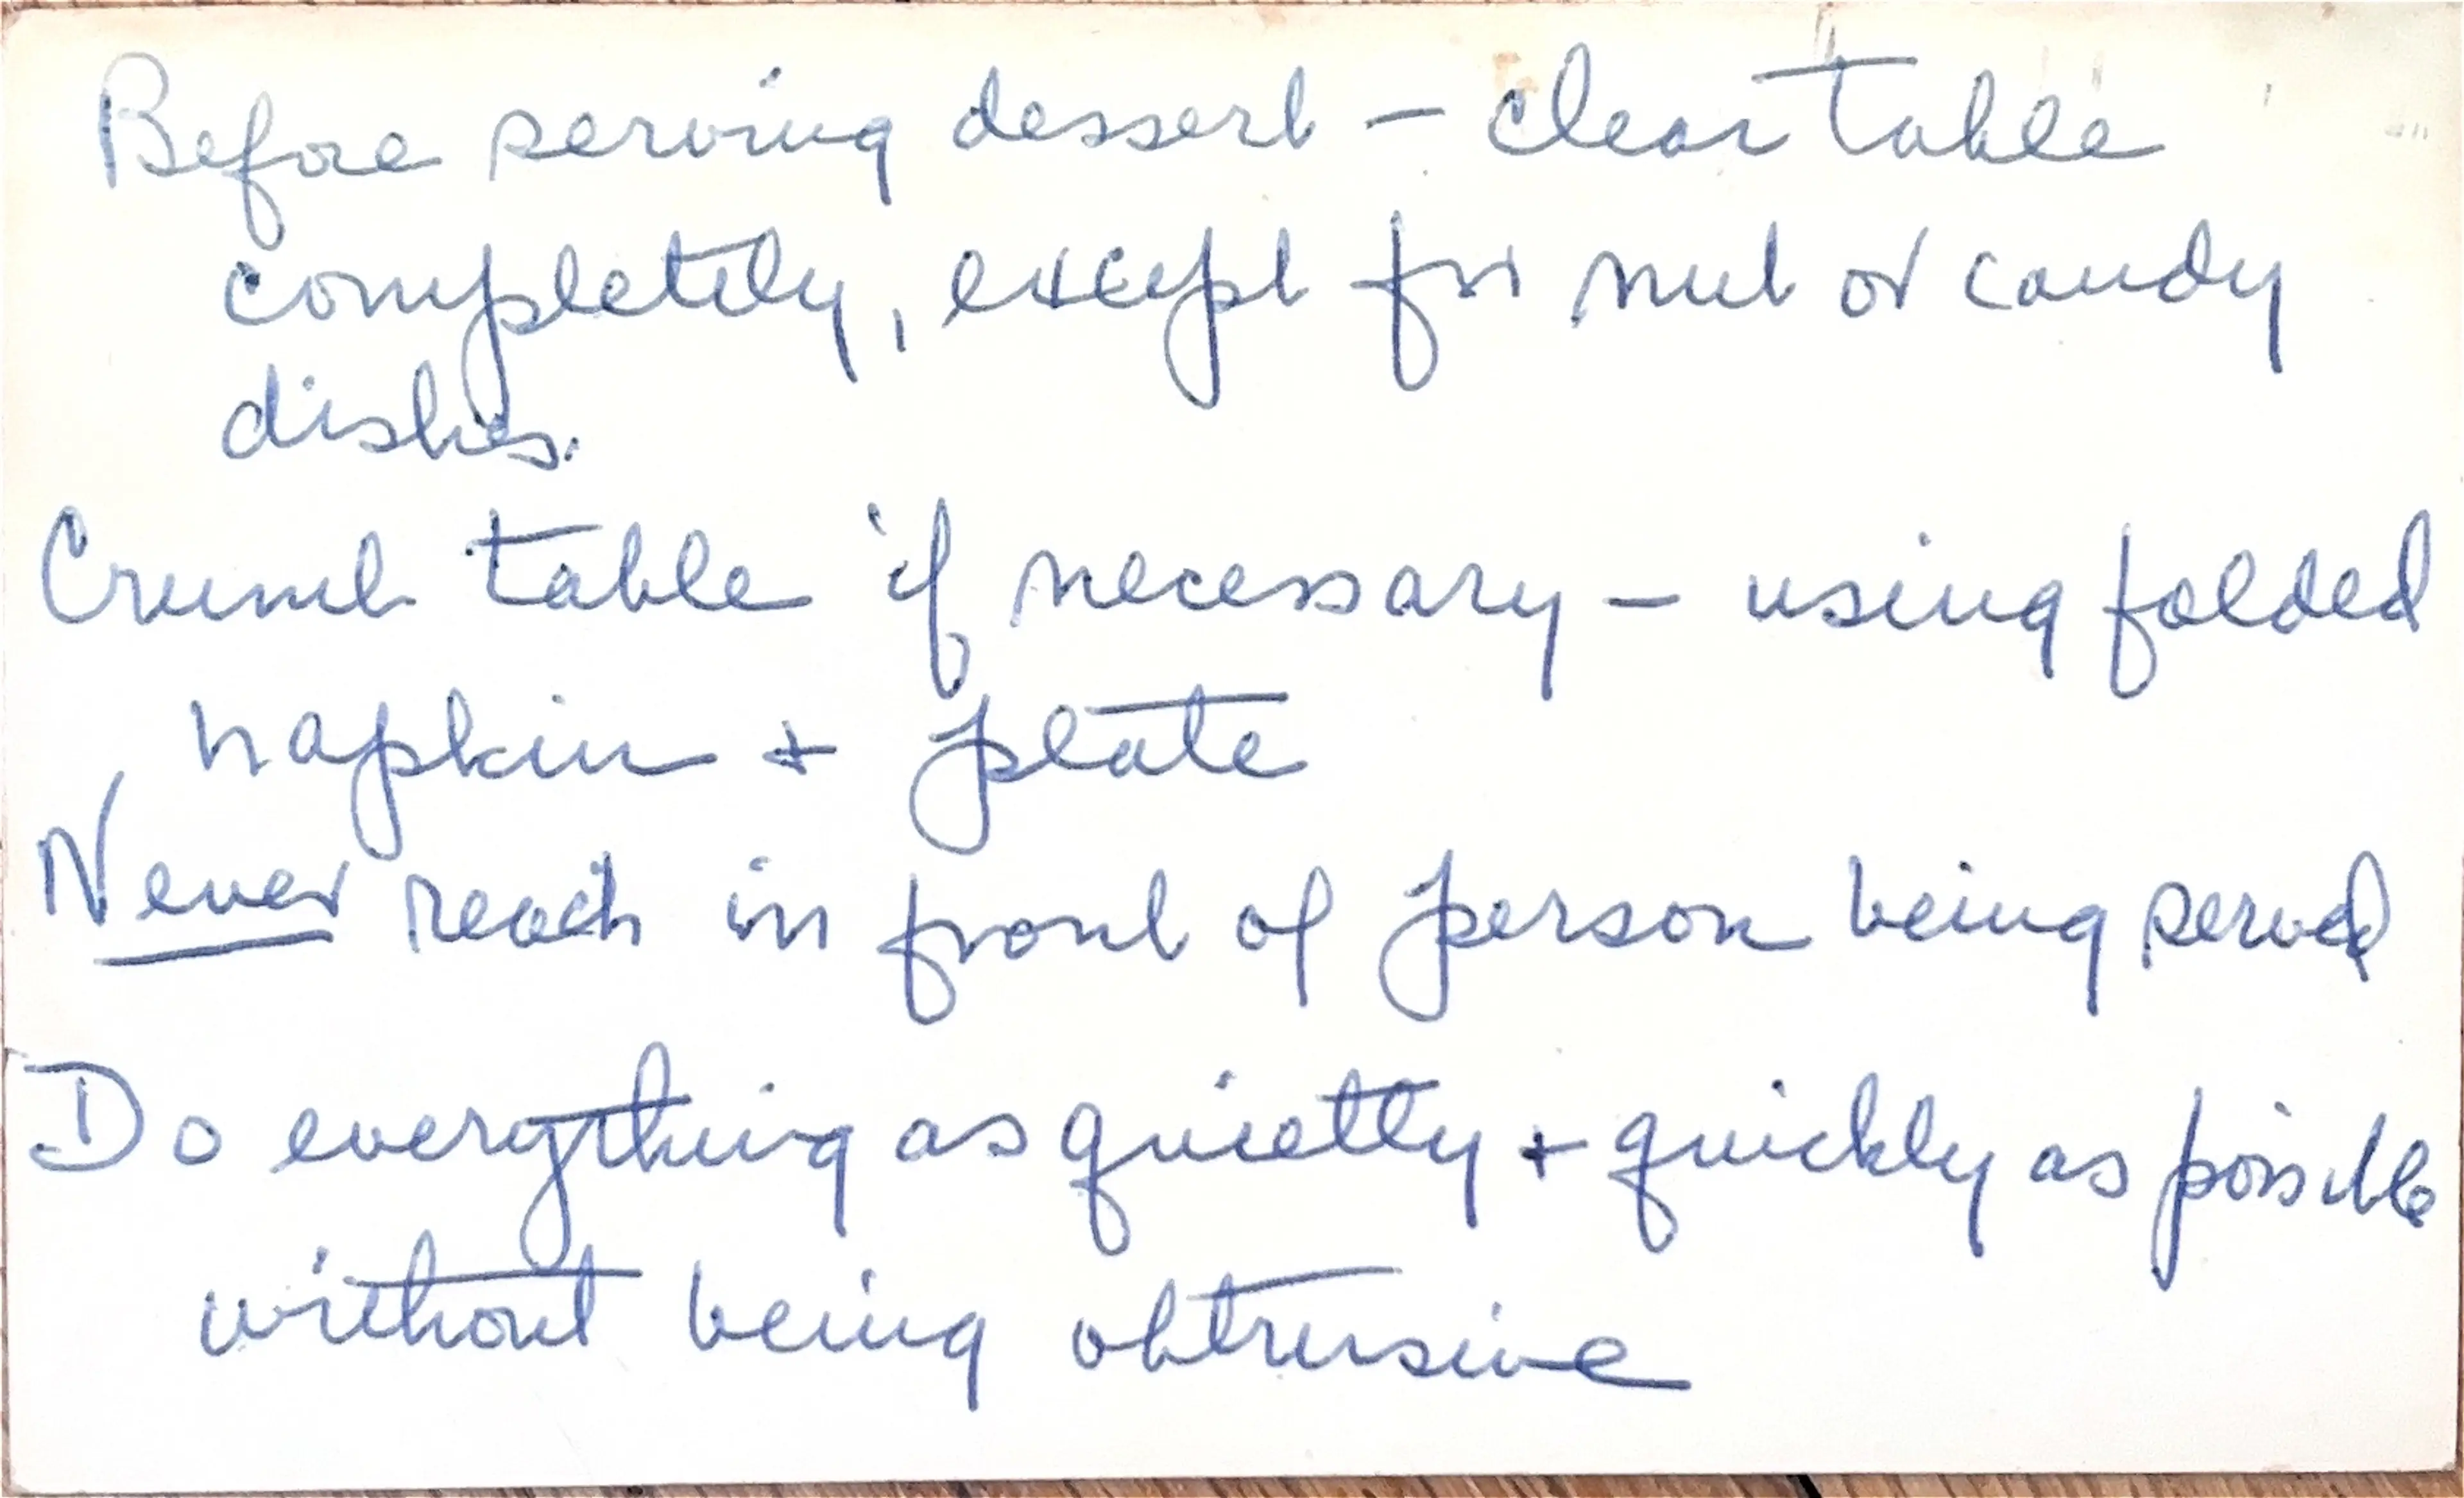 Before serving dessert – clear table
completely, except for nut or candy
dishes.
Crumb table if necessary – using folded
napkin + plate
Never reach in front of person being served
Do everything as quietly + quickly as possible
without being obtrusive